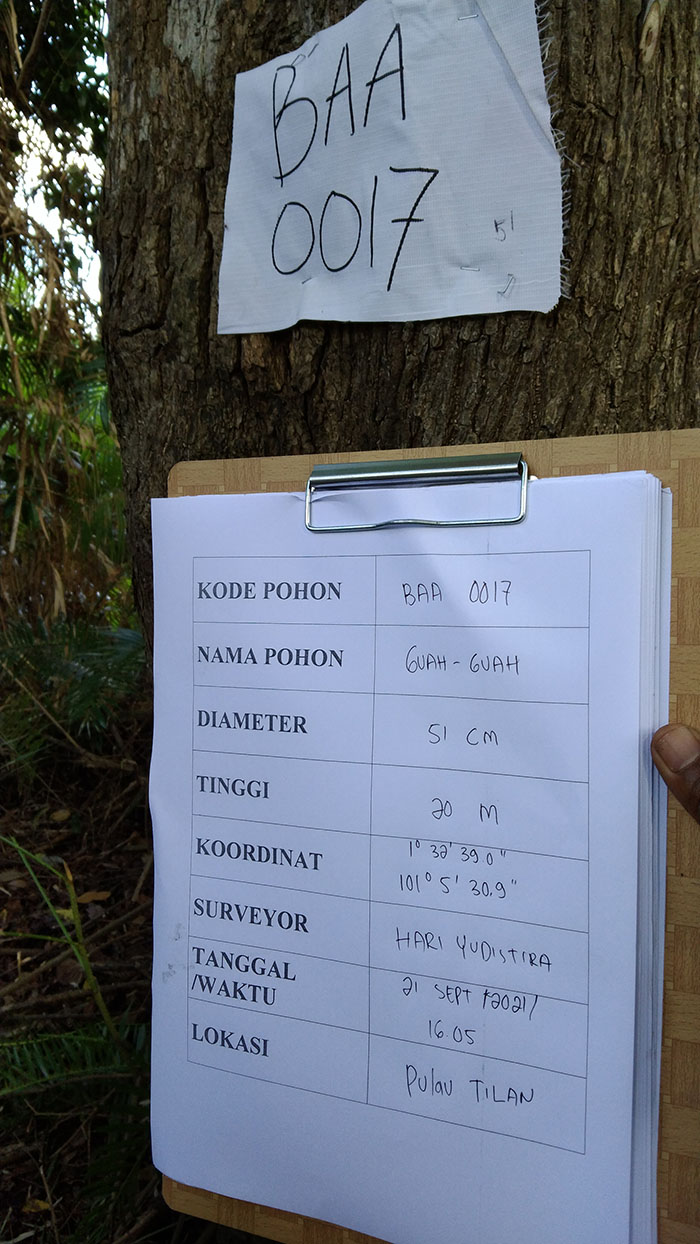 BAA
0017
51
KODE POHON BAA 0017
NAMA POHON GUAH - GUAH
DIAMETER 51 CM
TINGGI 20 M
KOORDINAT 1° 32' 39.0"
101° 5' 30.9"
SURVEYOR HARI YUDISTIRA
TANGGAL 21 SEPT 2021/
/WAKTU 16.05
LOKASI Pulau TILAN